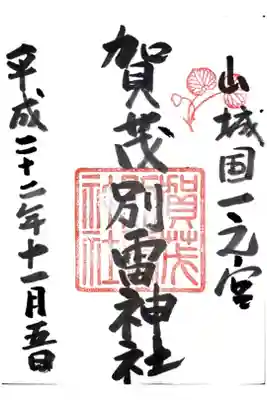 山城国一之宮
賀茂別雷神社
平成二十二年十一月五日
賀茂